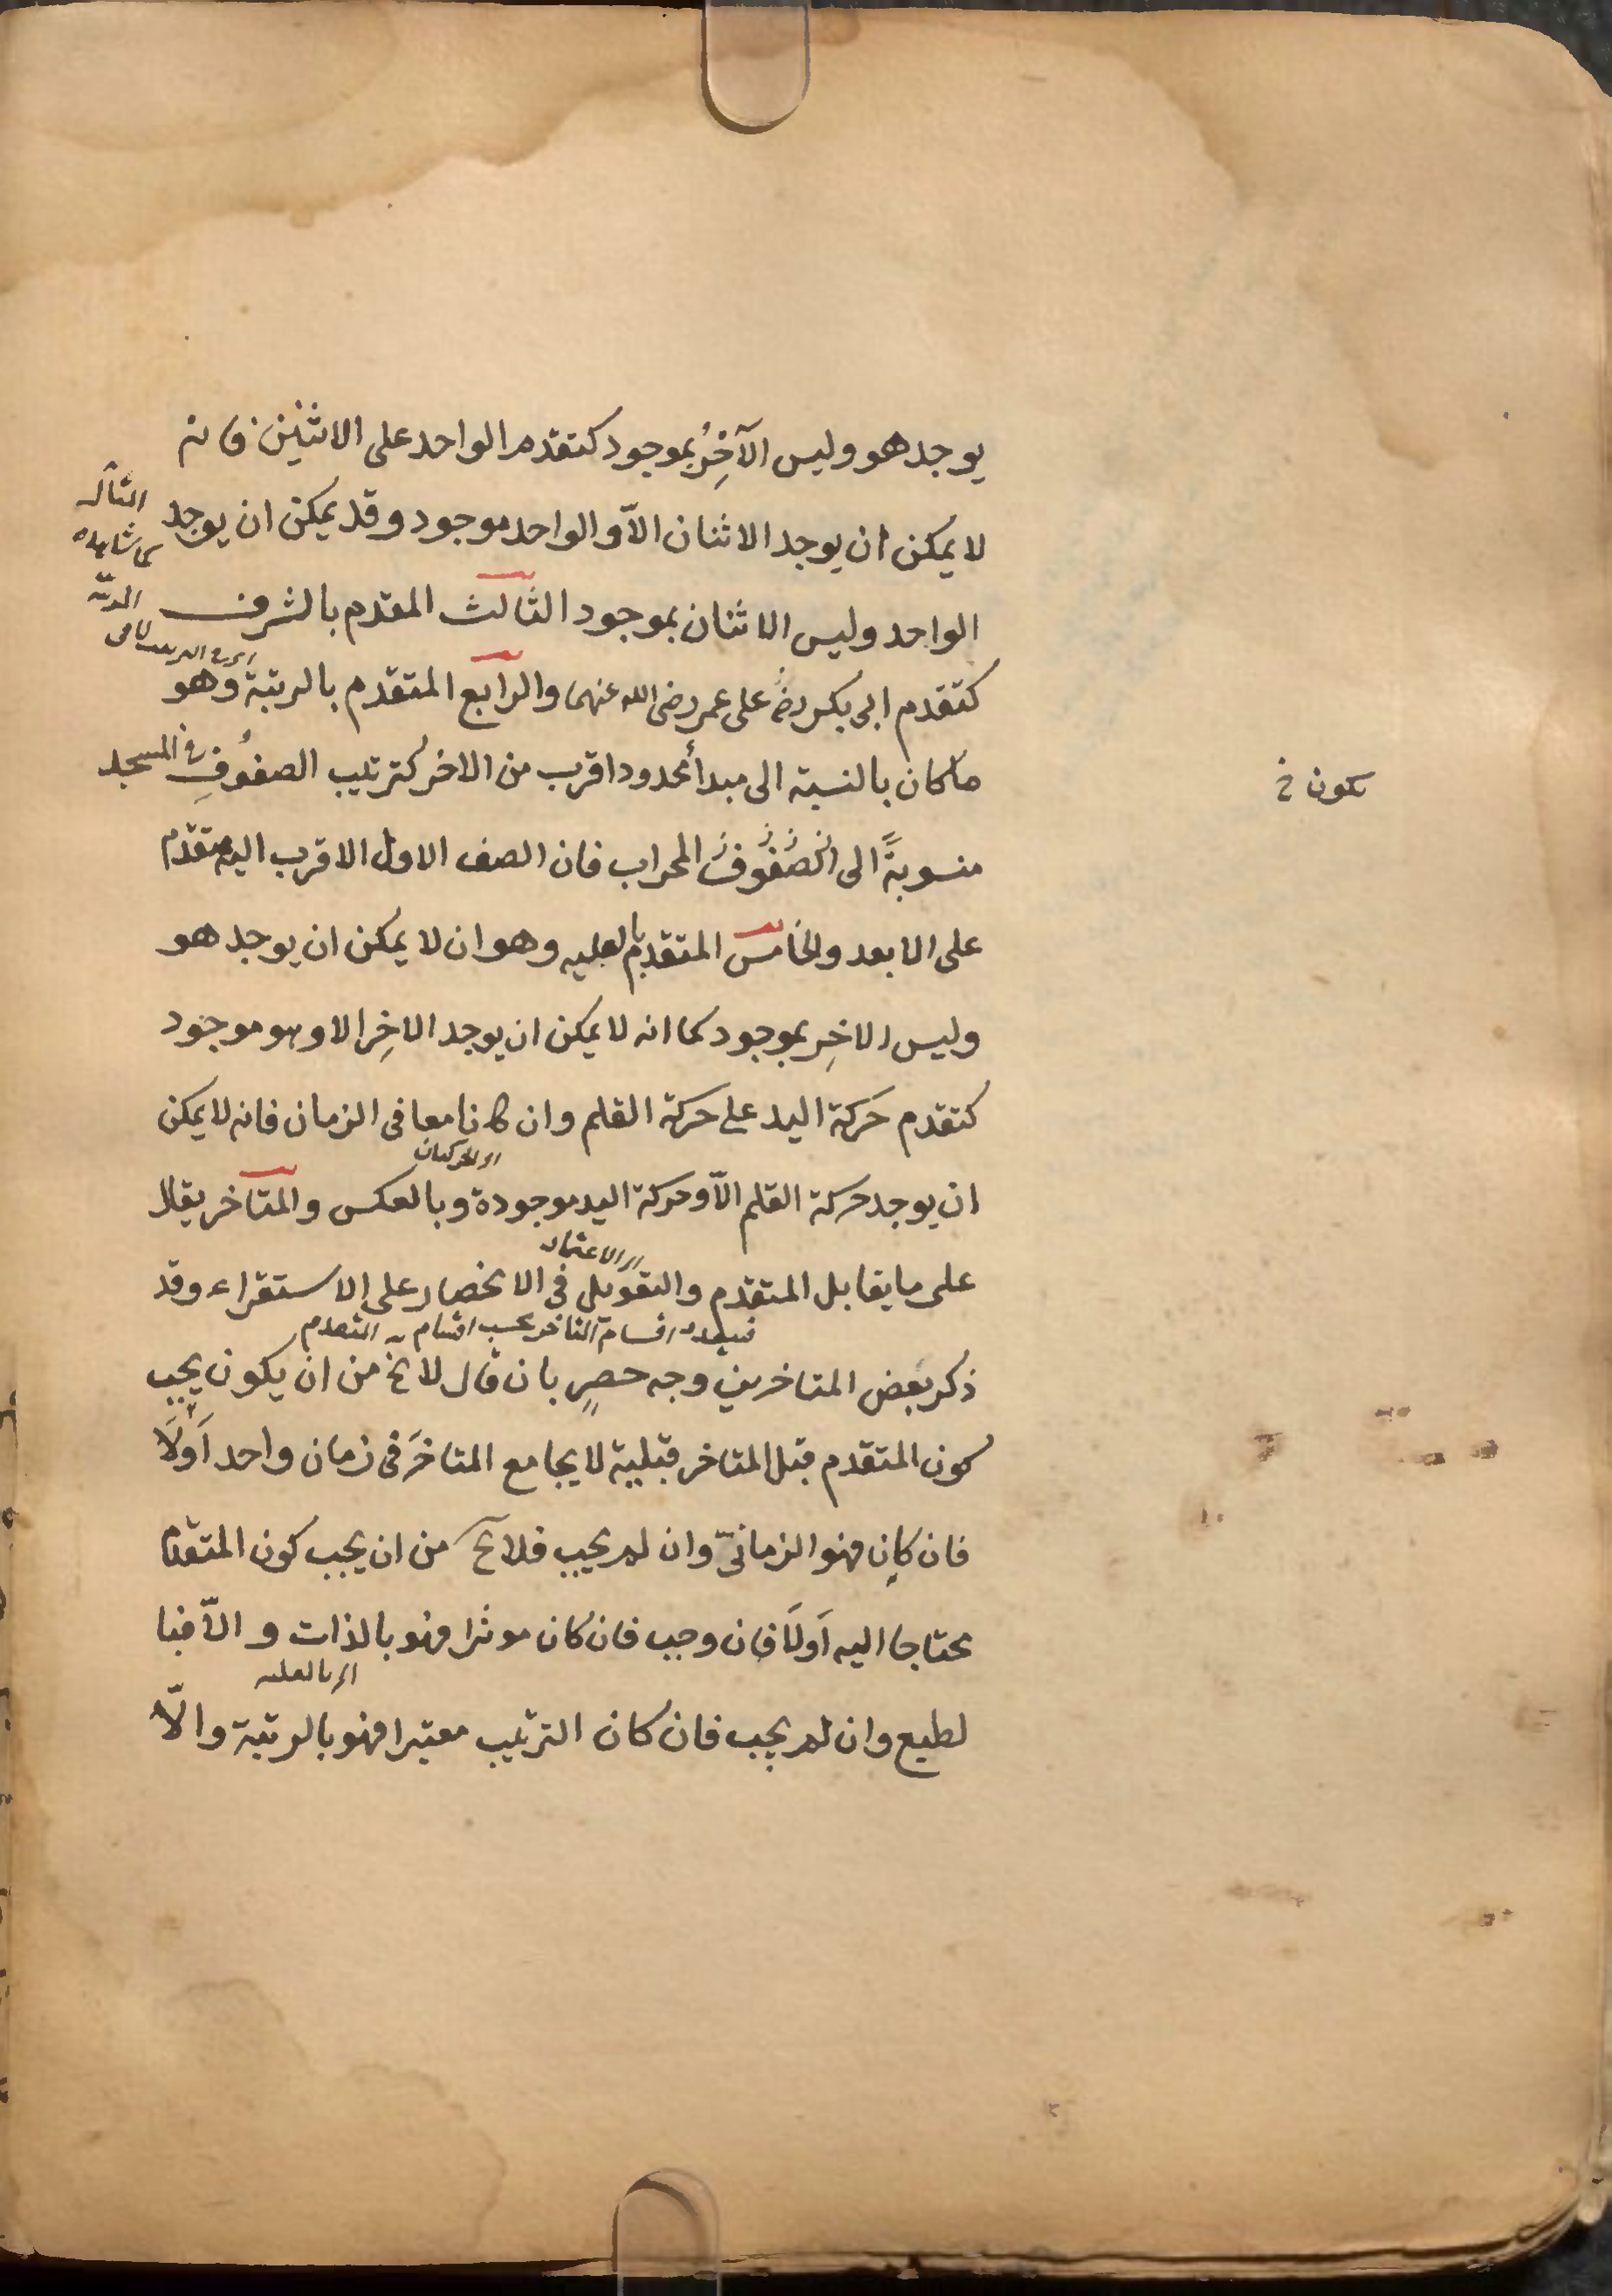 يوجد هو وليس الآخِرُ بموجود كتقدم الواحد على الاثنين فانه
لا يمكن ان يوجد الاثنان الاّ والواحد موجود وقد يمكن ان يوجد
الواحد وليس الاثنان بموجود الثالث المقدم بالشرف
كتقدم ابى بكر رضـ على عمر رضى الله عنهما والرابع المتقدم بالرتبة وهو
ما كان بالنسبة الى مبدأ محدود اقرب من الاخر كترتيب الصفوُفِ فى المسجد
يكون خ
منسوبةً الى الصفوف المحراب فان الصف الاول الاقرب اليه متقدم
على الابعد والخامس المتقدم بالعليه وهو ان لا يمكن ان يوجد هو
وليس الاخِر بموجود كما انه لا يمكن ان يوجد الاخِر الا وهو موجود
كتقدم حَركة اليد على حركة القلم وان كانا معا فى الزمان فانه لا يمكن
ان يوجد حركة القلم الاّ وحركة اليد موجودة وبالعكس والمتاخر يقال
على ما يقابل المتقدم والتعويل فى الانحصار على الاستقراء وقد
اى الاعتماد
فيتعدد اقسام التاخر بحسب اقسام التقدم
ذكر بعض المتاخرين وجه حصرٍ بان قال لا يخ من ان يكون يجب
كون المتقدم قبل المتاخر قبلية لا يجامع المتاخَر فى زمان واحد اَولَا
فان كان فهو الزمانىّ وان لم يجب فلا يخ من ان يجب كون المتقدم
محتاجا اليه اَولَا فان وجب فان كان موثرا فهو بالذات و الاّ فبا
اى بالعلية
لطبع وان لم يجب فان كان الترتيب معتبرا فهو بالرتبة والاّ